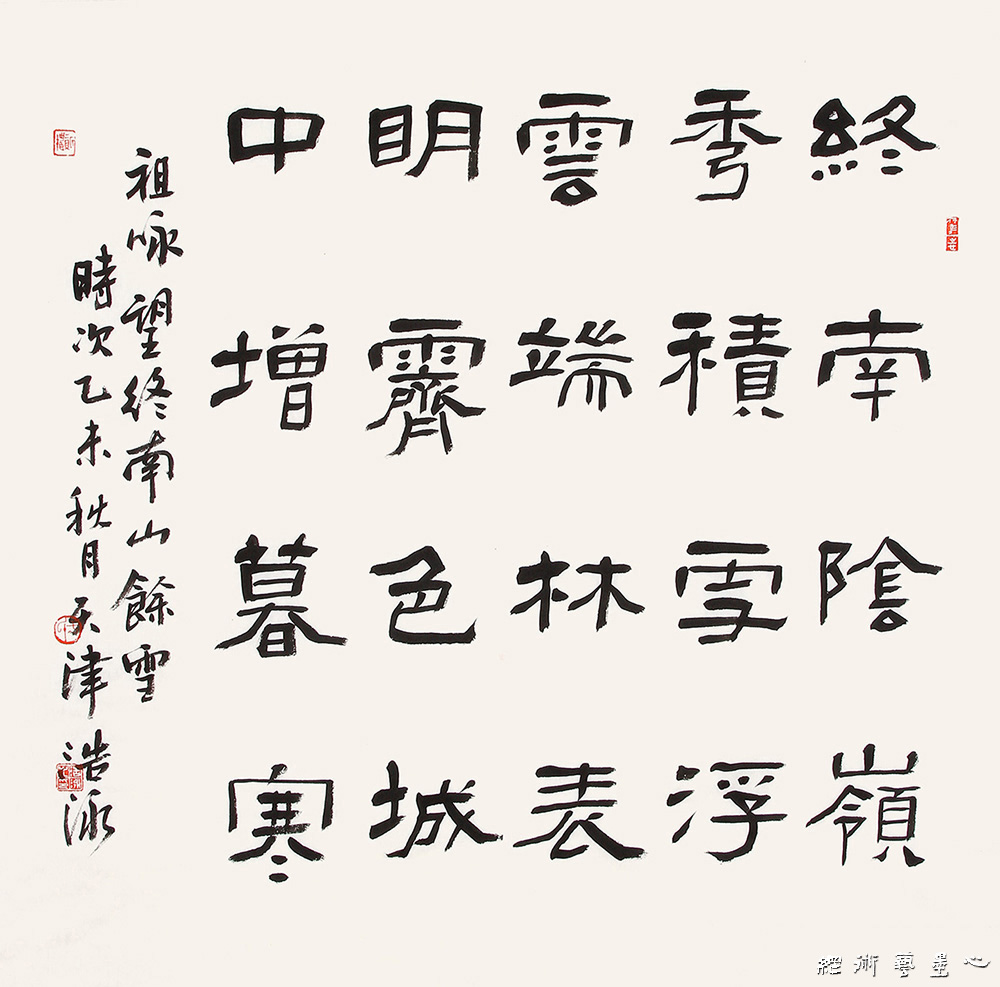 終南陰嶺
秀積雪浮
雲端林表
明霽色城
中增暮寒
祖咏望終南山餘雪
時次乙未秋月天津浩泳